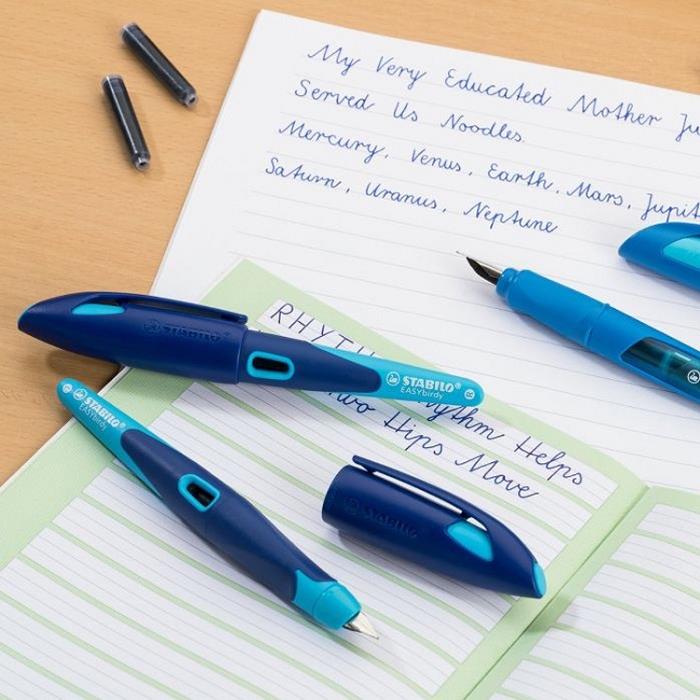 My Very Educated Mother Ju
Served Us Noodles.
Mercury, Venus, Earth, Mars, Jupit
Saturn, Uranus, Neptune
RHYT
Rhythm Helps
Two Hips Move
STABILO
STABILO®
EASYbirdy
STABILO®
EASYbirdy
STABILO